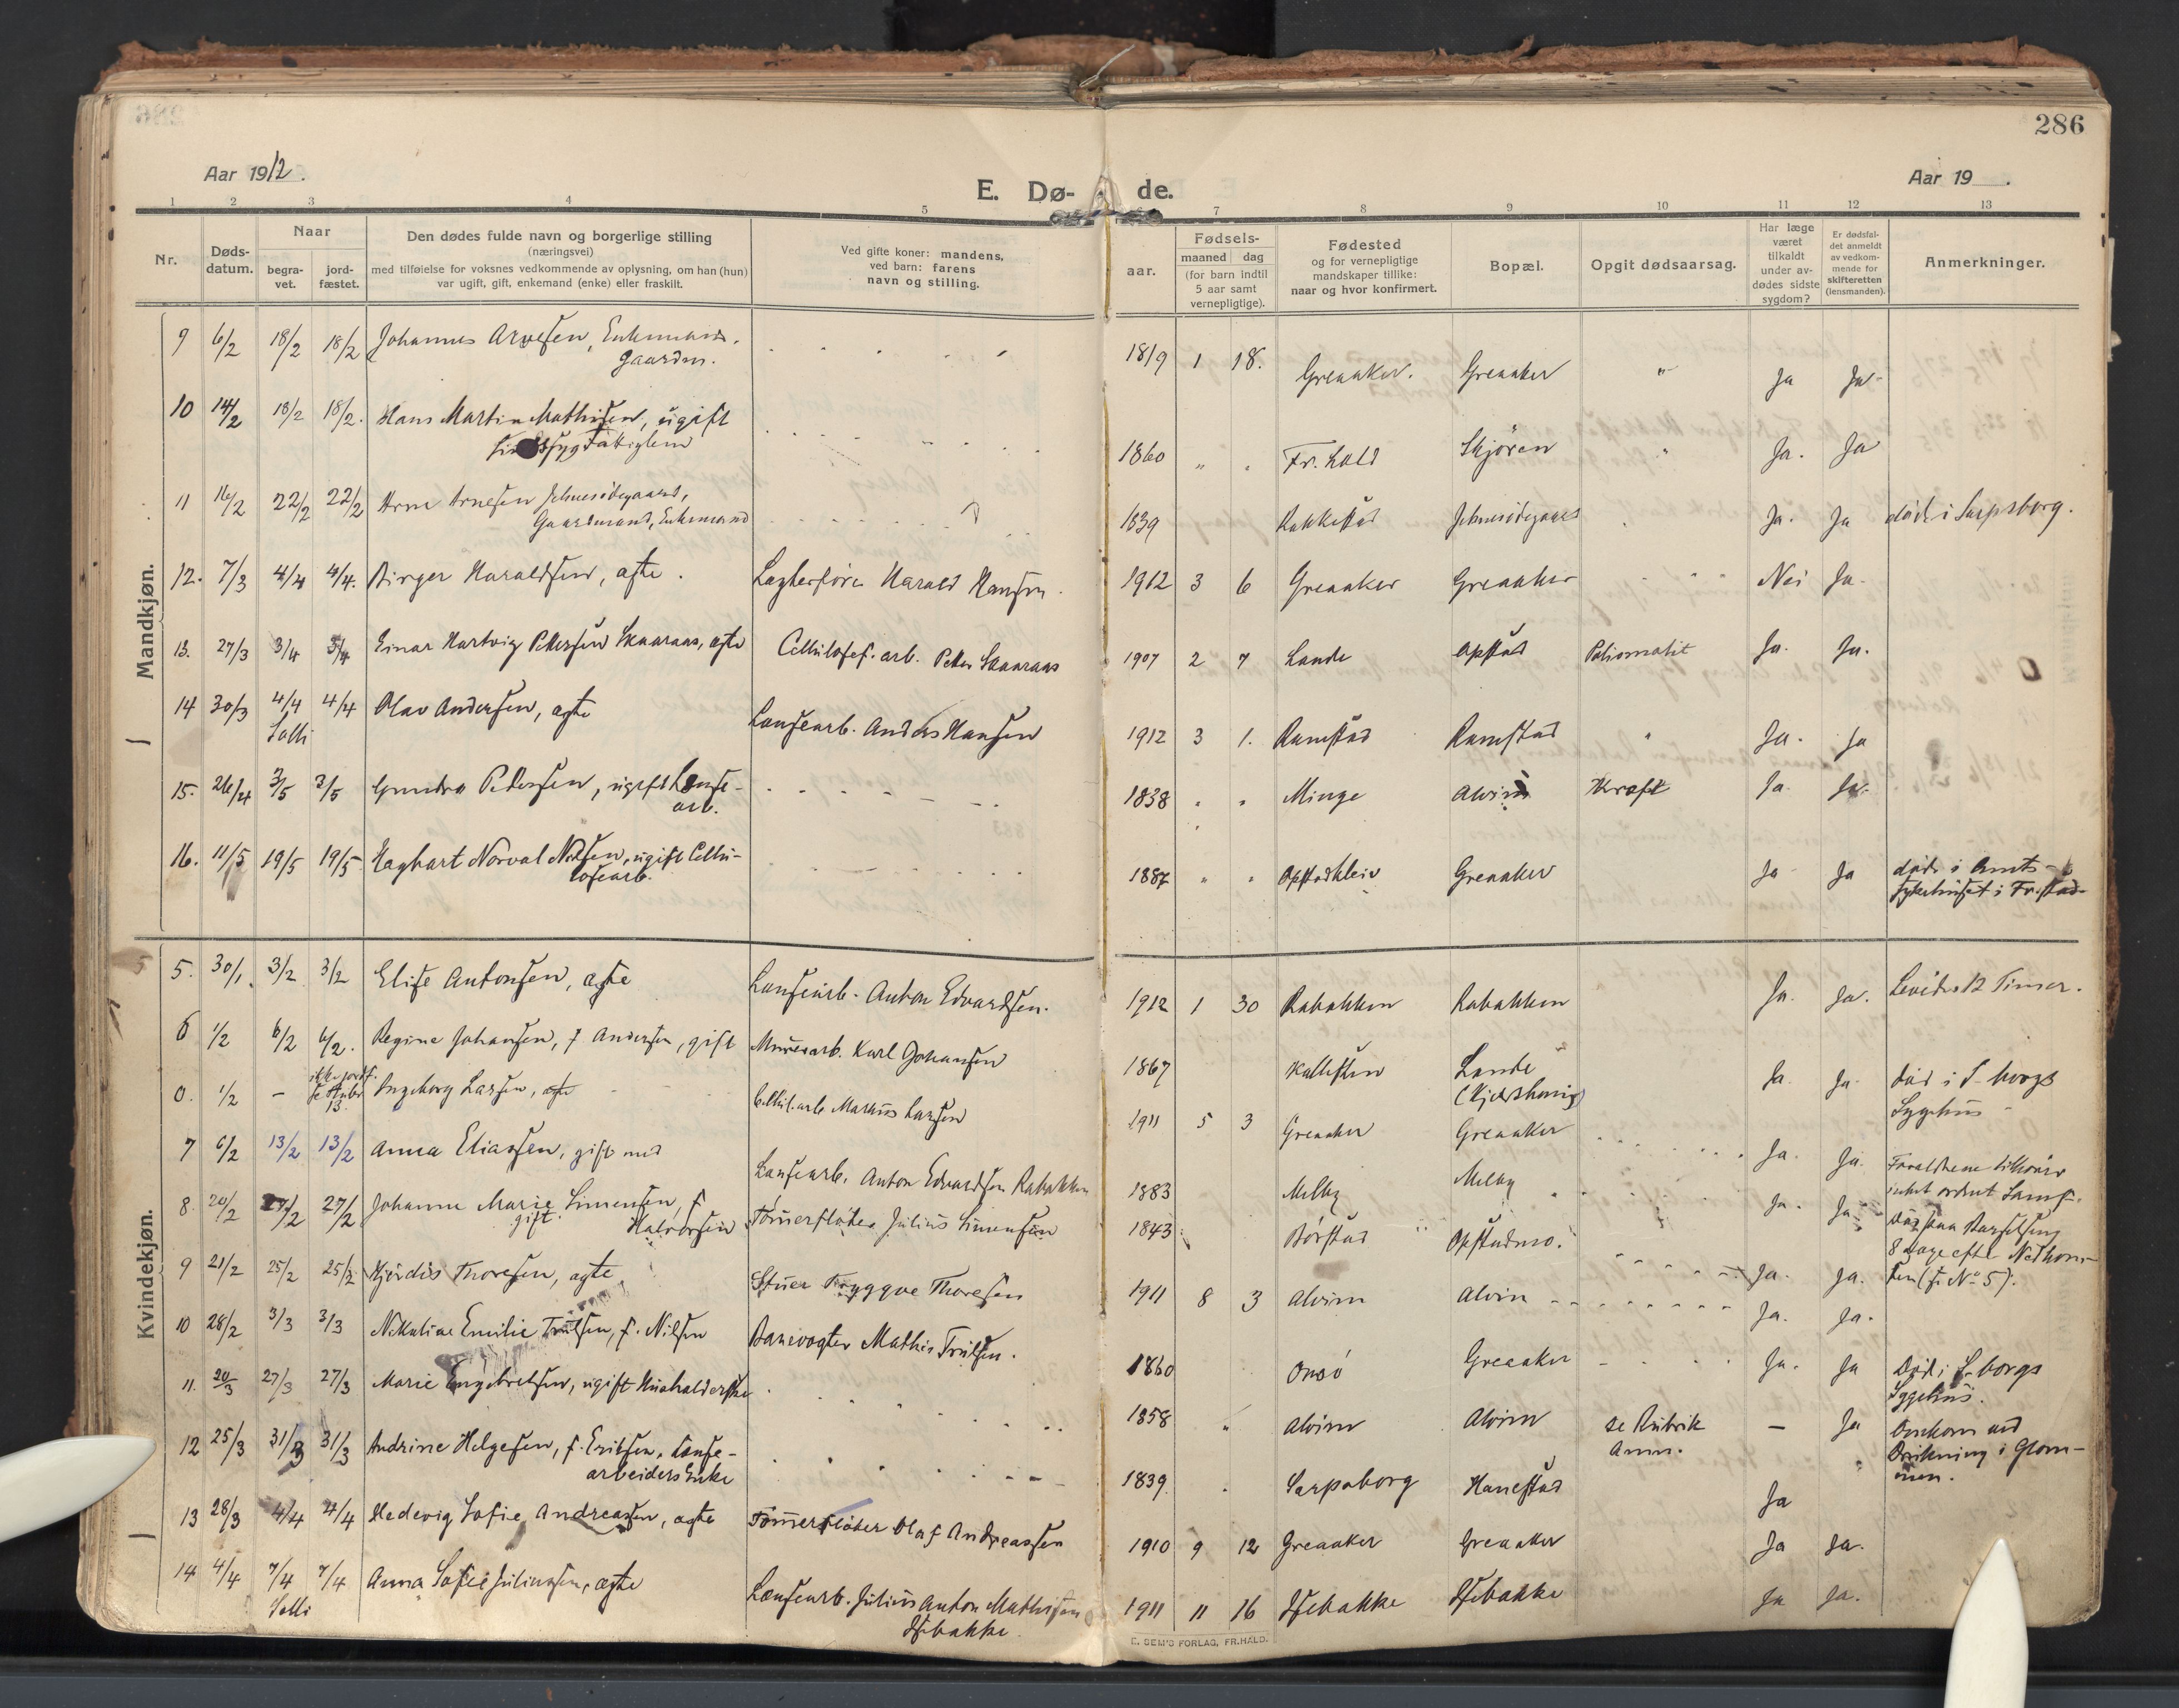 286
Aar 1912.
E. Dø- de.
Aar 19 .
1 2 3 4 5 7 8 9 10 11 12 13
Nr.
Døds-
datum.
Naar
begra-
vet.
jord-
fæstet.
Den dødes fulde navn og borgerlige stilling
(næringsvei)
med tilføielse for voksnes vedkommende av oplysning, om han (hun)
var ugift, gift, enkemand (enke) eller fraskilt.
Ved gifte koner: mandens,
ved barn: farens
navn og stilling.
aar.
Fødsels-
maaned dag
(for barn indtil
5 aar samt
vernepligtige).
Fødested
og for vernepligtige
mandskaper tillike:
naar og hvor konfirmert.
Bopæl.
Opgit dødsaarsag.
Har læge
været
tilkaldt
under av-
dødes sidste
sygdom?
Er dødsfal-
det anmeldt
av vedkom-
mende for
skifteretten
(lensmanden).
Anmerkninger.
Mandkjøn.
9 6/2 18/2 18/2 Johannes Arvesen, Enkemand. 1819 1 18. Greaaker. Greaaker " Ja Ja
Gaardm.
10 14/2 18/2 18/2. Hans Martin Mathisen, ugift 1860 " " Fr.hald Skjören " Ja. Ja
Fattiglem
11 16/2 22/2 22/2 Arne Arnesen 1839 Rakkestad Ja. Ja død i Sarpsborg.
Gaardmand, Enkemand
12. 7/3 4/4 4/4. Birger Haraldsen, ægte. Harald Hansen. 1912 3 6 Greaaker Greaaker Nei Ja.
13. 27/3 3/4 3/4 Einar Hartvig Pettersen Skaaraas, ægte Cellulosef. arb. Petter Skaaraas 1907 2 7 Lande Opstad Ja. Ja.
14 30/3 4/4 4/4 Olav Andersen, ægte Lensearb. Anders Hansen 1912 3 1. Ramstad Ramstad " Ja. Ja
Solli
15. 26/4 3/5 3/5 Pedersen, ugift Lense- 1838 " " Minge Alvim Kræft Ja Ja.
arb.
16. 11/5 19/5 19/5 Hagbart Norval Nilsen, ugift Cellu- 1887 " " Opstadkleiv Greaaker Ja Ja død i Amts-
losearb. sykehuset i Fr.stad
Kvindekjøn.
5. 30/1. 3/2 3/2 Elise Antonsen, ægte Lensearb. Anton Edvardsen. 1912 1 30 Rabakken Rabakken Ja. Ja. Levede 12 Timer.
6 1/2 6/2 6/2. Regine Johansen, f. Andersen, gift Murerarb. Karl Johansen 1867 Kallesten Lande Ja. Ja. død i S-borgs
Sygehus
0. 1/2 - ikke jordf. Ingeborg Larsen, ægte Cellul.arb Markus Larsen 1911 5 3 Greaaker Greaaker Ja. Ja. Forældrene tilhører
13.
7 6/2 13/2 13/2 Anna Eliassen, gift med Lensearb. Anton Edvardsen Rabakken 1883 Melby Melby Ja. Ja
8. 20/2 27/2 27/2 Johanne Marie Simensen, f. Tømmerfløter Julius Simensen 1843 Børstad Opstadmo. Ja. Ja. 8 dage efter Nedkom-
gift. Halvorsen sten (f. No 5).
9 21/2 25/2 25/2 Hjørdis Thoresen, ægte Stuer Tryggve Thoresen 1911 8 3 Alvim Alvim Ja. Ja.
10 28/2 3/3 3/3 Nikoline Emilie Trulsen, f. Nilsen Banevogter Mathis Trulsen. 1860 Onsö Greaaker Ja. Ja Død i S-borgs
Sygehus.
11. 20/3 27/3 27/3 Marie Engebretsen, ugift Husholderske 1858 " Alvim Alvim se Rubrik — Ja Omkom ved
Anm. Drukning i Glom-
men.
12 25/3 31/3 31/3 Andrine Helgesen, f. Eriksen, Lense- 1839. Sarpsborg Hanestad Ja
arbeiders Enke
13 28/3 4/4 4/4 Hedevig Sofie Andreassen, ægte Tømmerfløter Olaf Andreassen 1910 9 12 Greaaker Greaaker Ja Ja.
14 4/4 7/4 7/4 Anna Sofie Juliussen, ægte Lensearb. Julius Anton Mathisen 1911 11 16 Isebakke Isebakke Ja Ja.
Solli Isebakke
E. SEM'S FORLAG, FR.HALD.